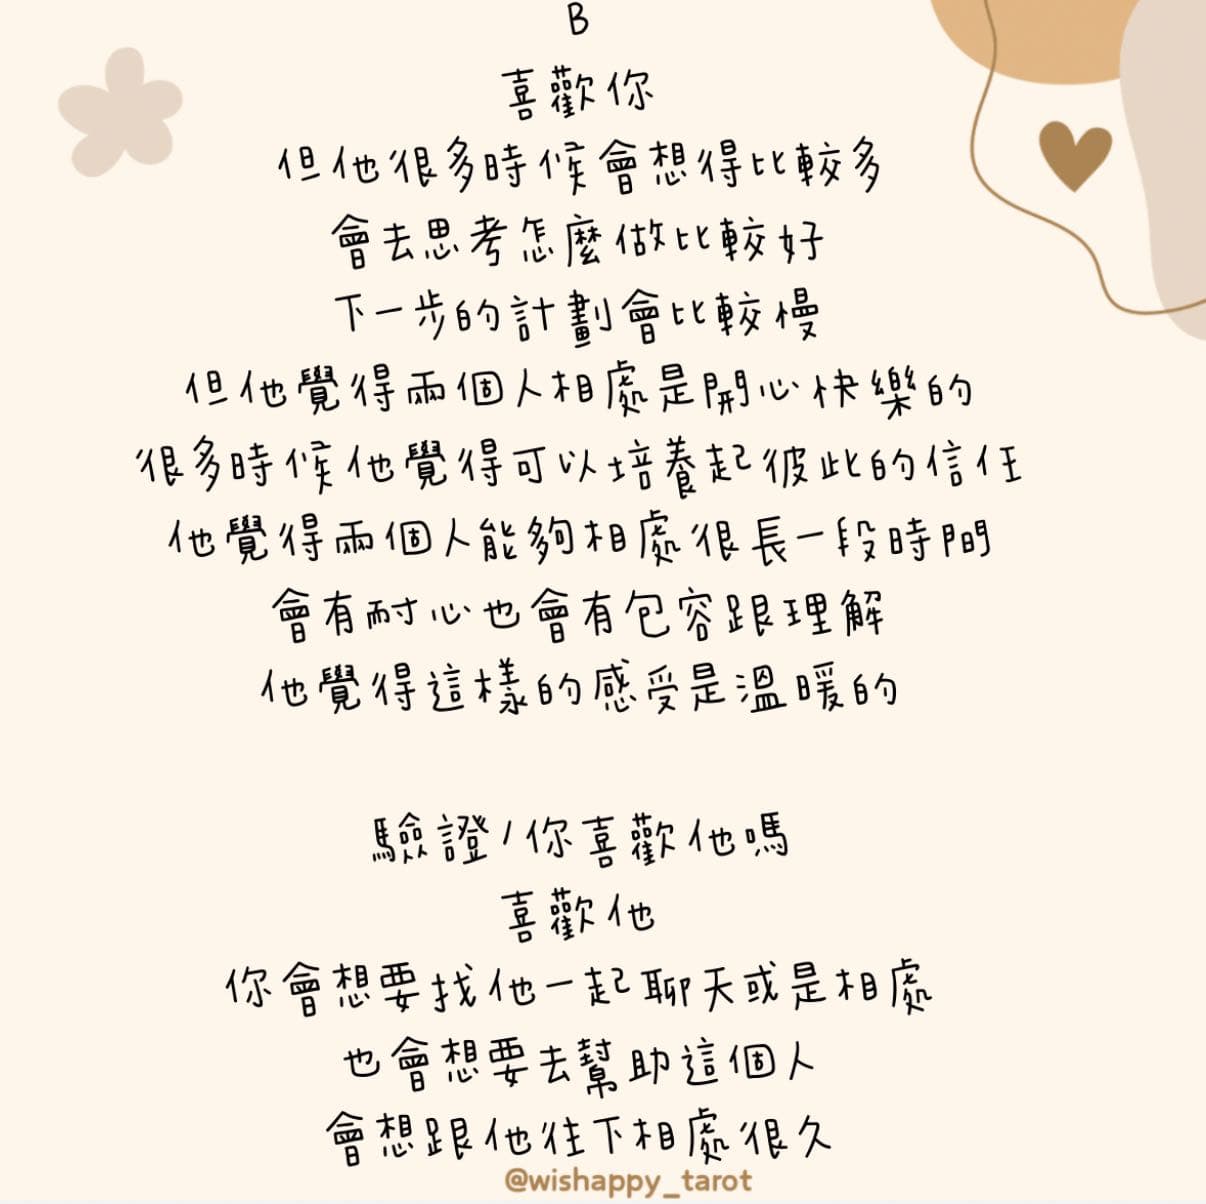 B
喜歡你
但他很多時候會想得比較多
會去思考怎麼做比較好
下一步的計劃會比較慢
但他覺得兩個人相處是開心快樂的
很多時候他覺得可以培養起彼此的信任
他覺得兩個人能夠相處很長一段時間
會有耐心也會有包容跟理解
他覺得這樣的感受是溫暖的
驗證/你喜歡他嗎
喜歡他
你會想要找他一起聊天或是相處
也會想要去幫助這個人
會想跟他往下相處很久
@wishappy_tarot